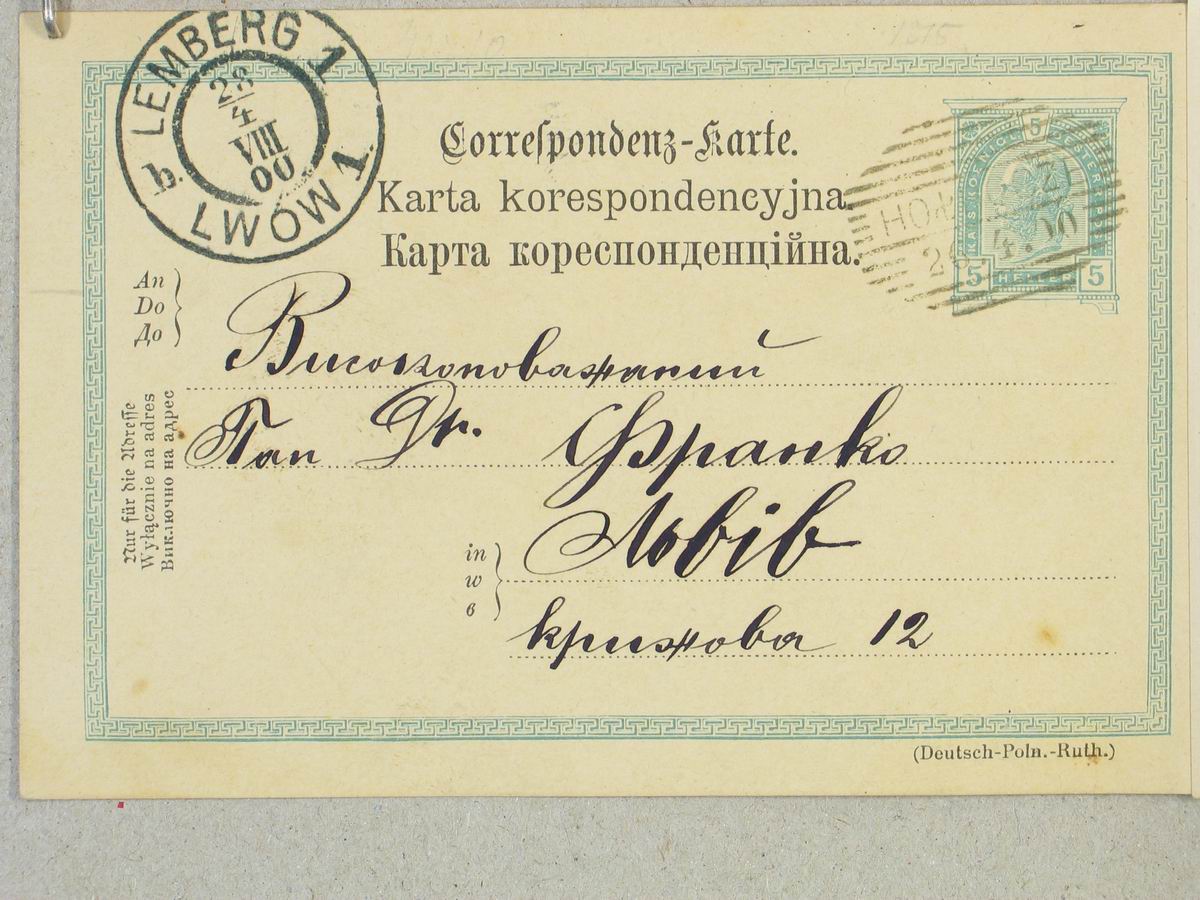 LEMBERG 1
28
4
VIII
00
b.
LWÓW 1
Correspondenz-Karte.
Karta korespondencyjna.
Карта кореспонденційна.
5
5 HELLER 5
An
Do
До
Високоповажаний
Пан Dr. Франко
in
w
в
Львів
крижова 12
Nur für die Adresse
Wyłącznie na adres
Виключно на адрес
(Deutsch-Poln.-Ruth.)